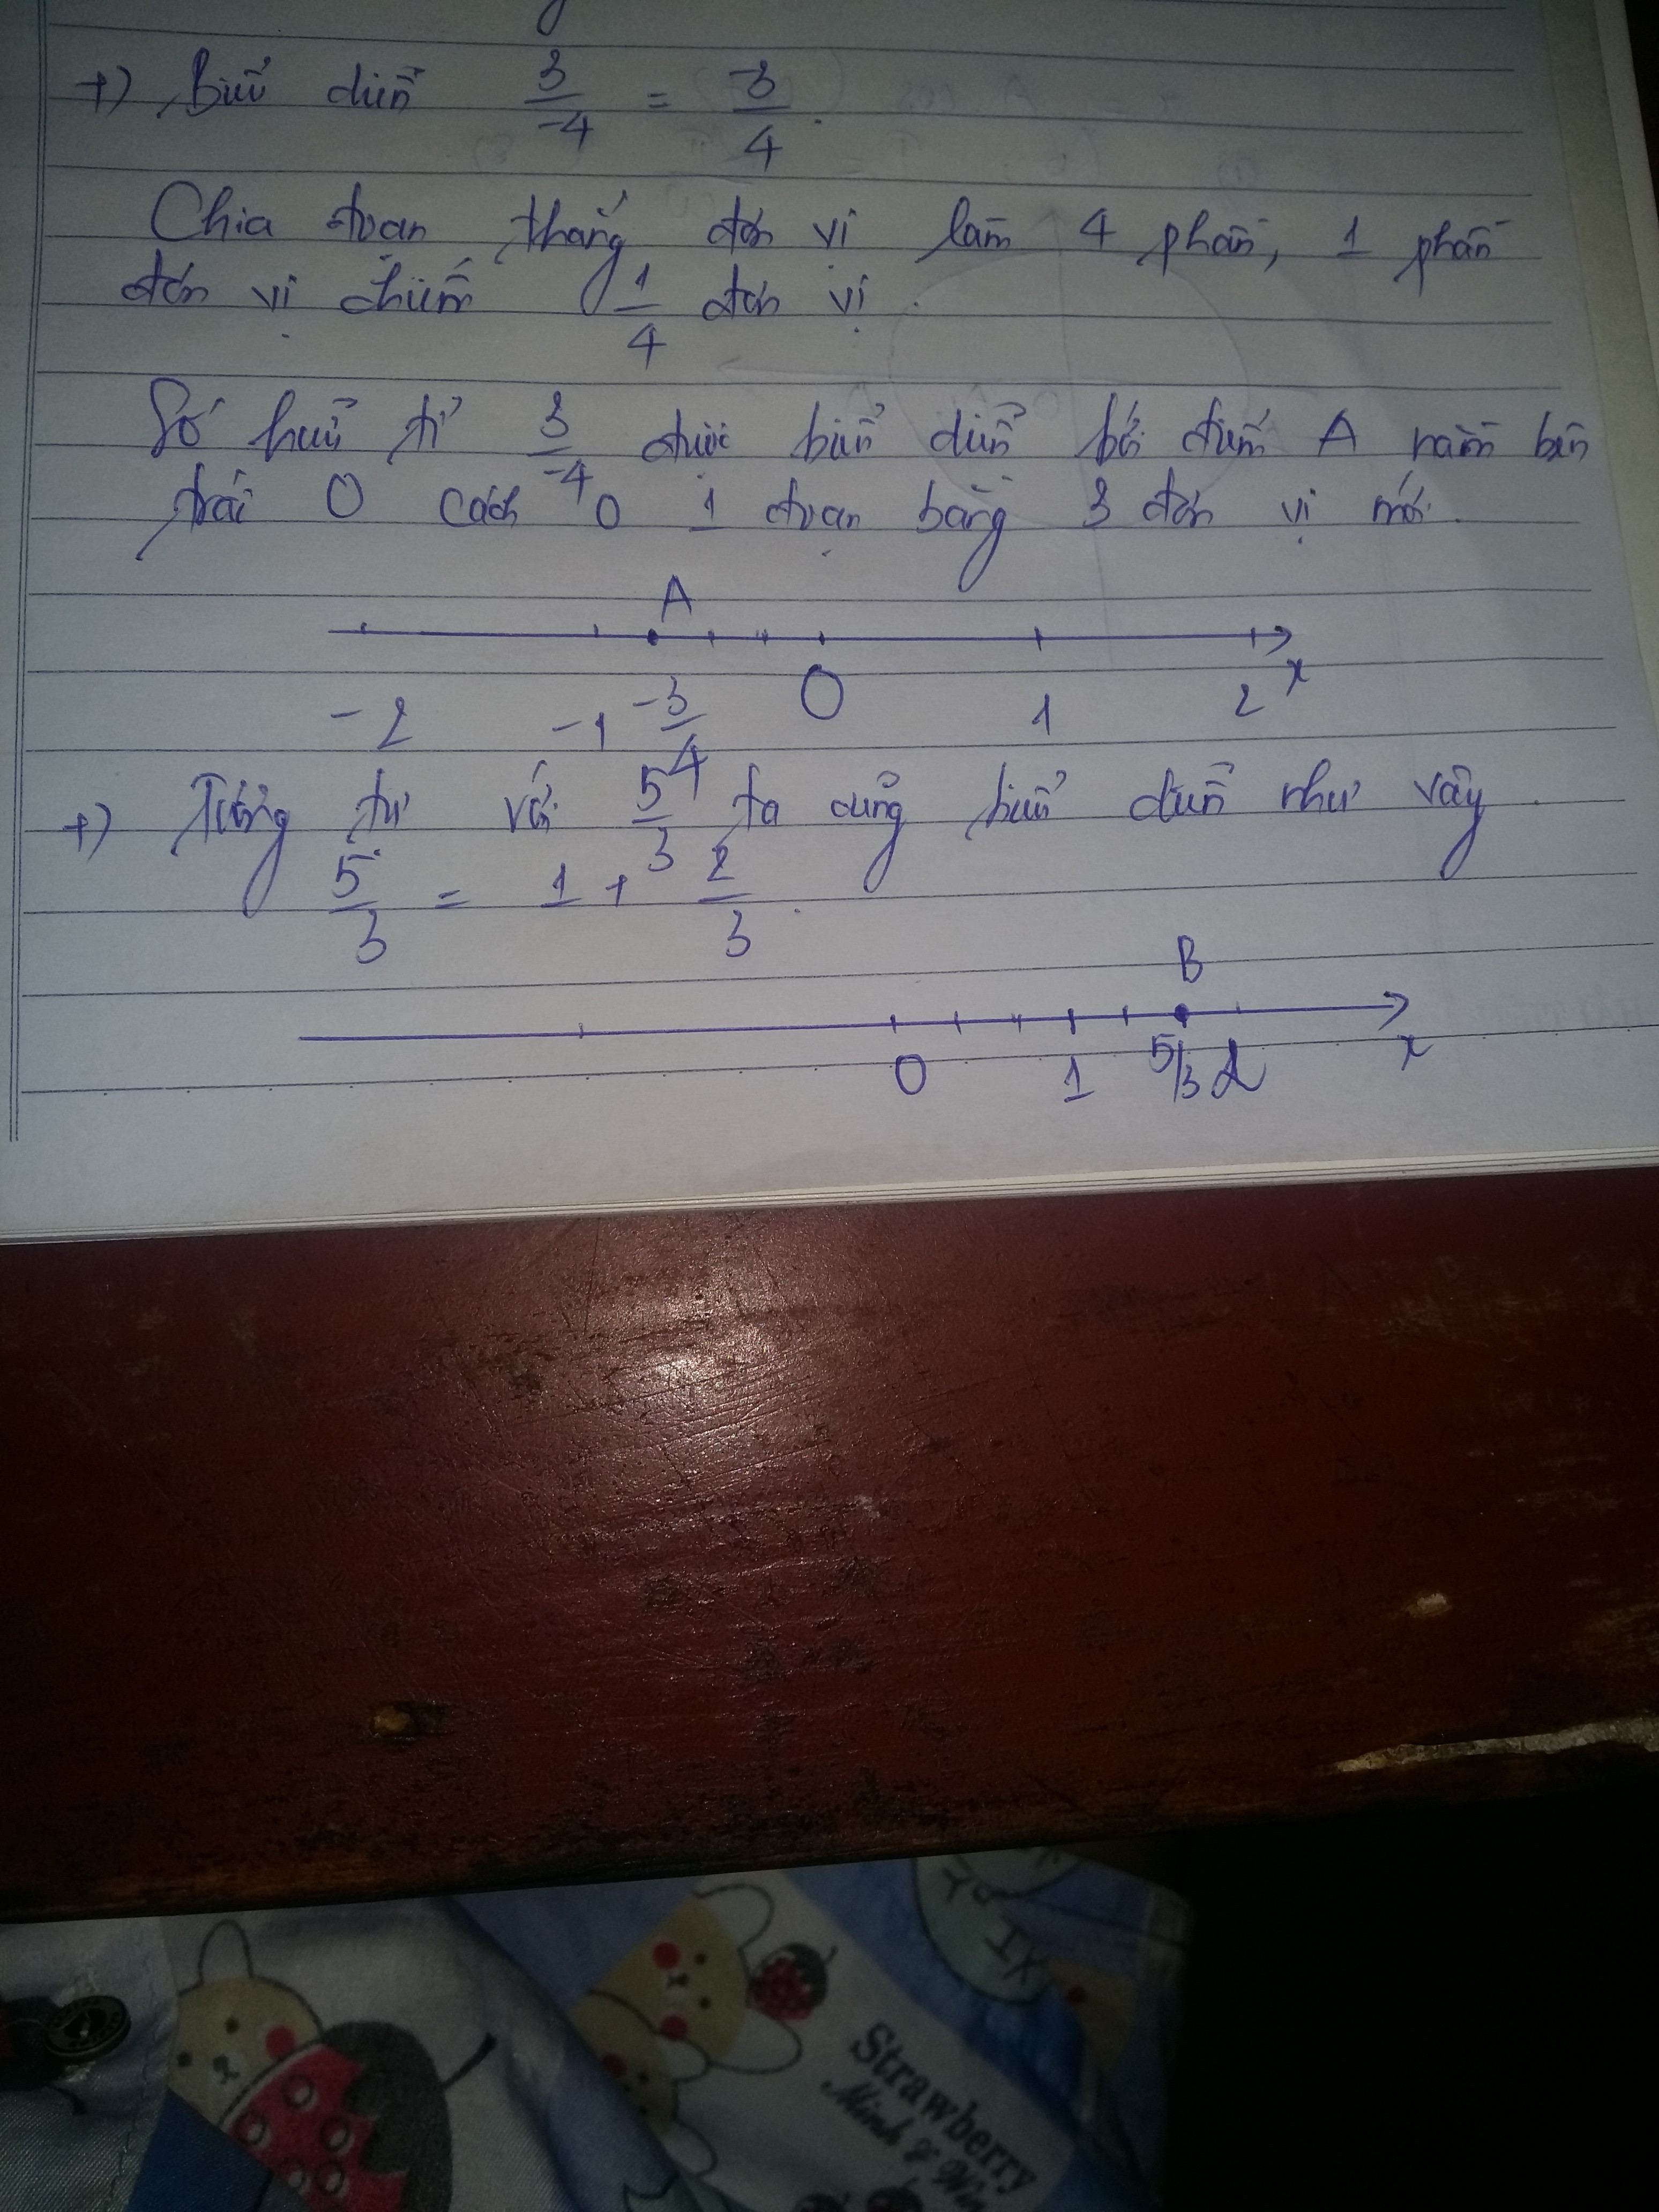 +) Biểu diễn 3/-4 = -3/4.
Chia đoạn thẳng đơn vị làm 4 phần, 1 phần
đơn vị chiếm 1/4 đơn vị.
Số hữu tỉ 3/-4 được biểu diễn bởi điểm A nằm bên
trái O cách O 1 đoạn bằng 3 đơn vị mới.
A
-2 -1 -3/4 O 1 2 x
+) Tương tự với 5/3 ta cũng biểu diễn như vậy.
5/3 = 1 + 2/3.
B
O 1 5/3 2 x
Strawberry